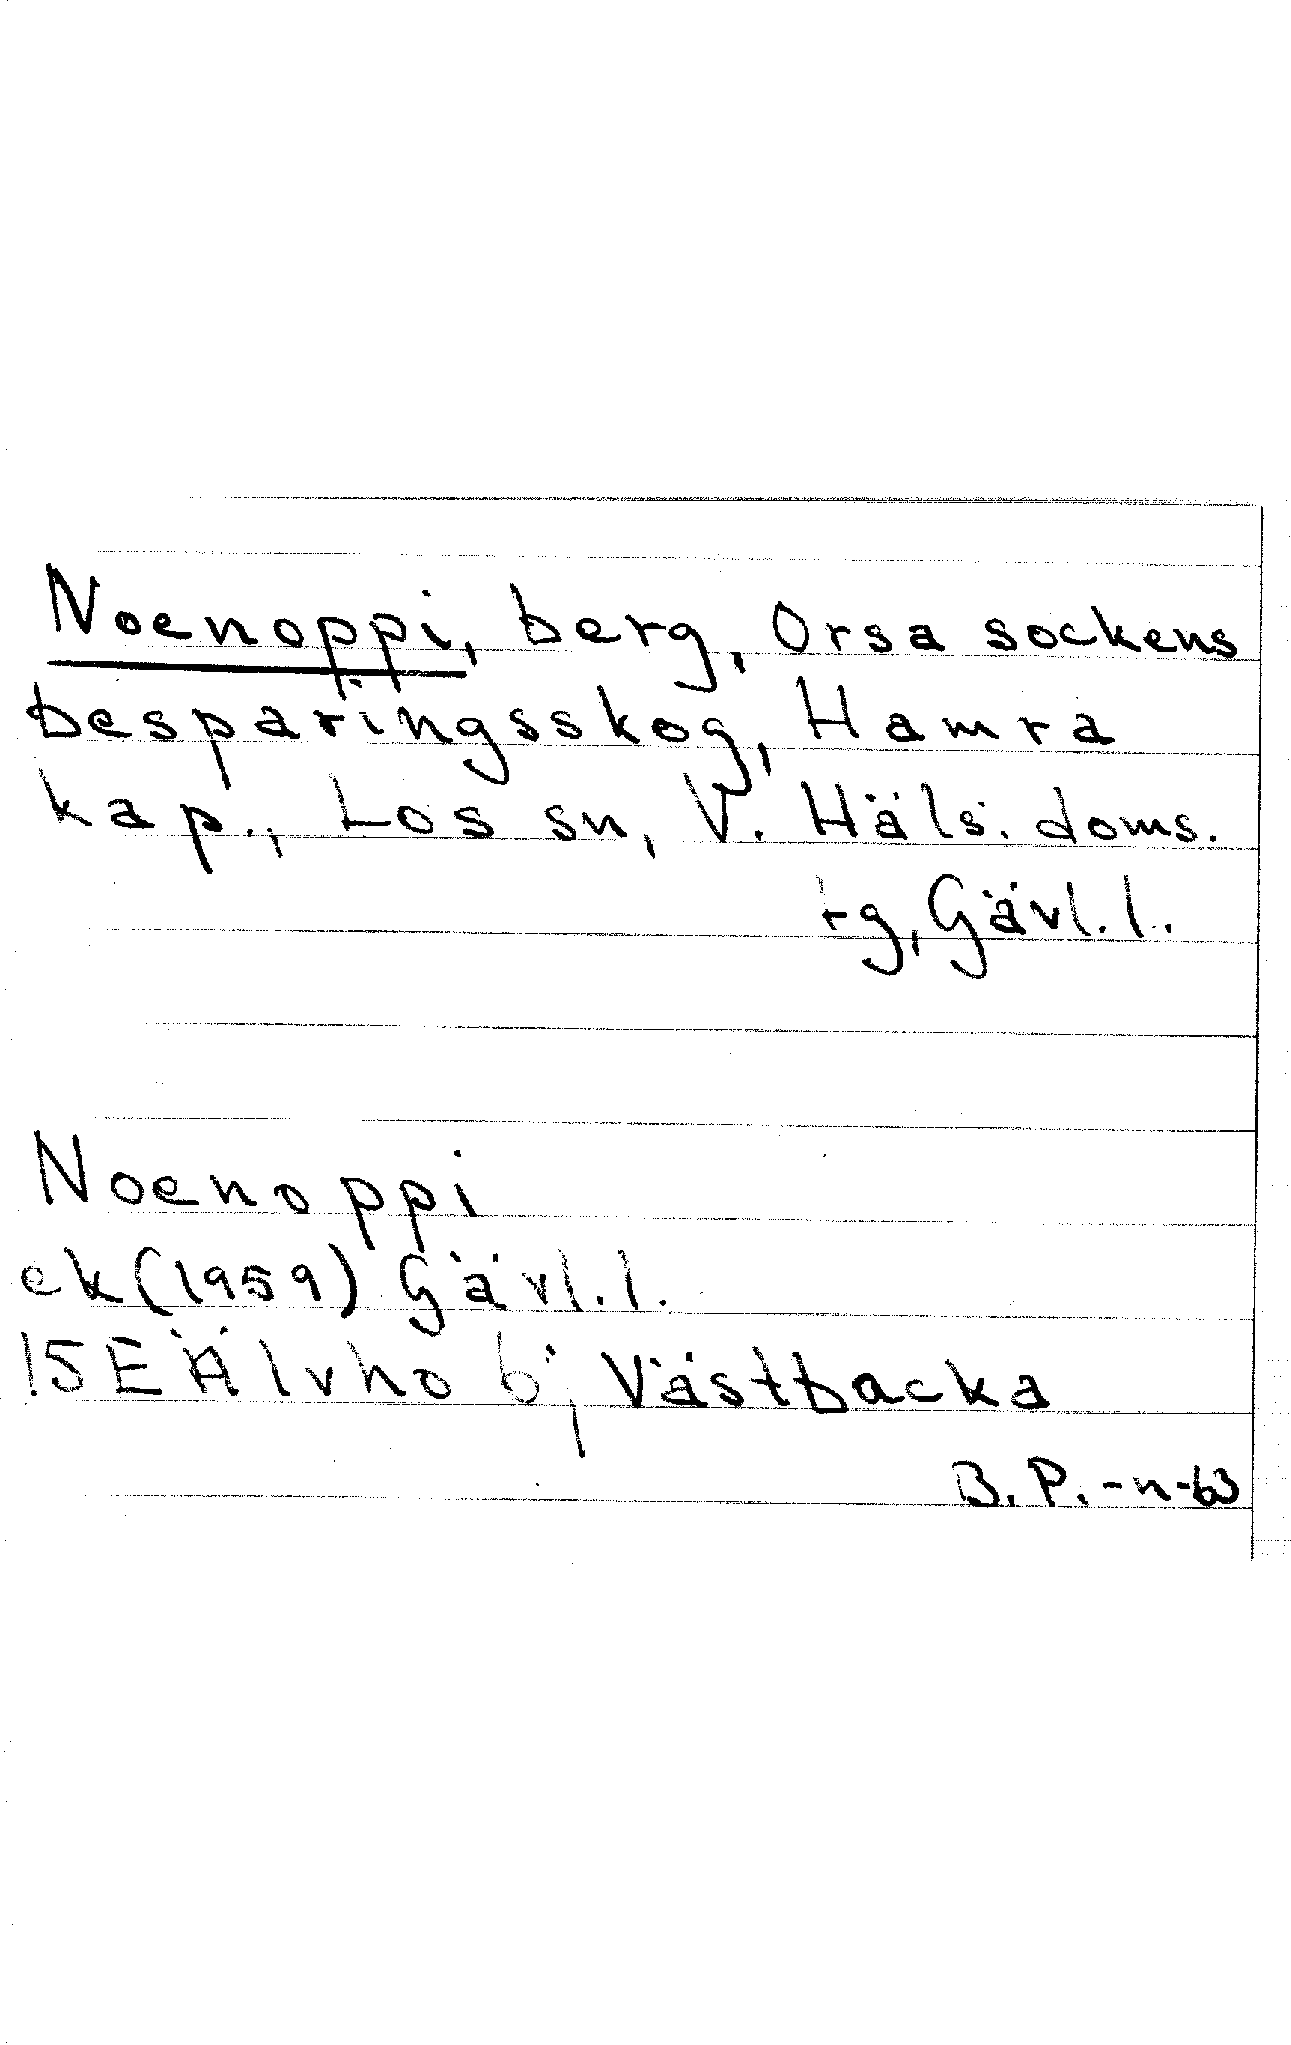 Noenoppi, berg, Orsa sockens
besparingsskog, Hamra
kap., Los sn, V. Häls. doms.
rg, Gävl. l.
Noenoppi
ek (1959) Gävl. l.
15E Älvho b; Västbacka
B. P. -n-63